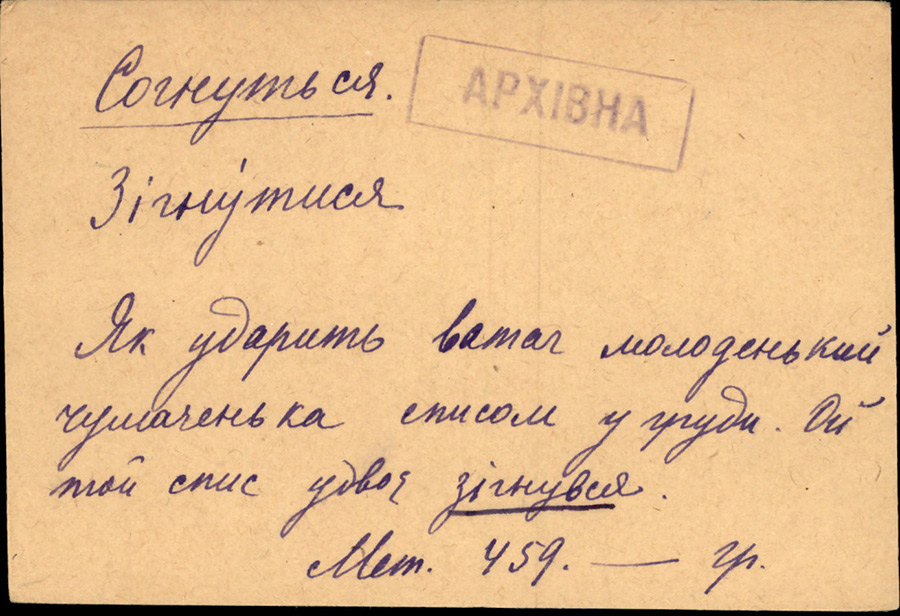 Согнуться.
АРХІВНА
Зігну́тися
Як ударить ватаг молоденький
чумаченька списом у груди. Ой
той спис удвоє зігнувся.
Мет. 459. — гр.